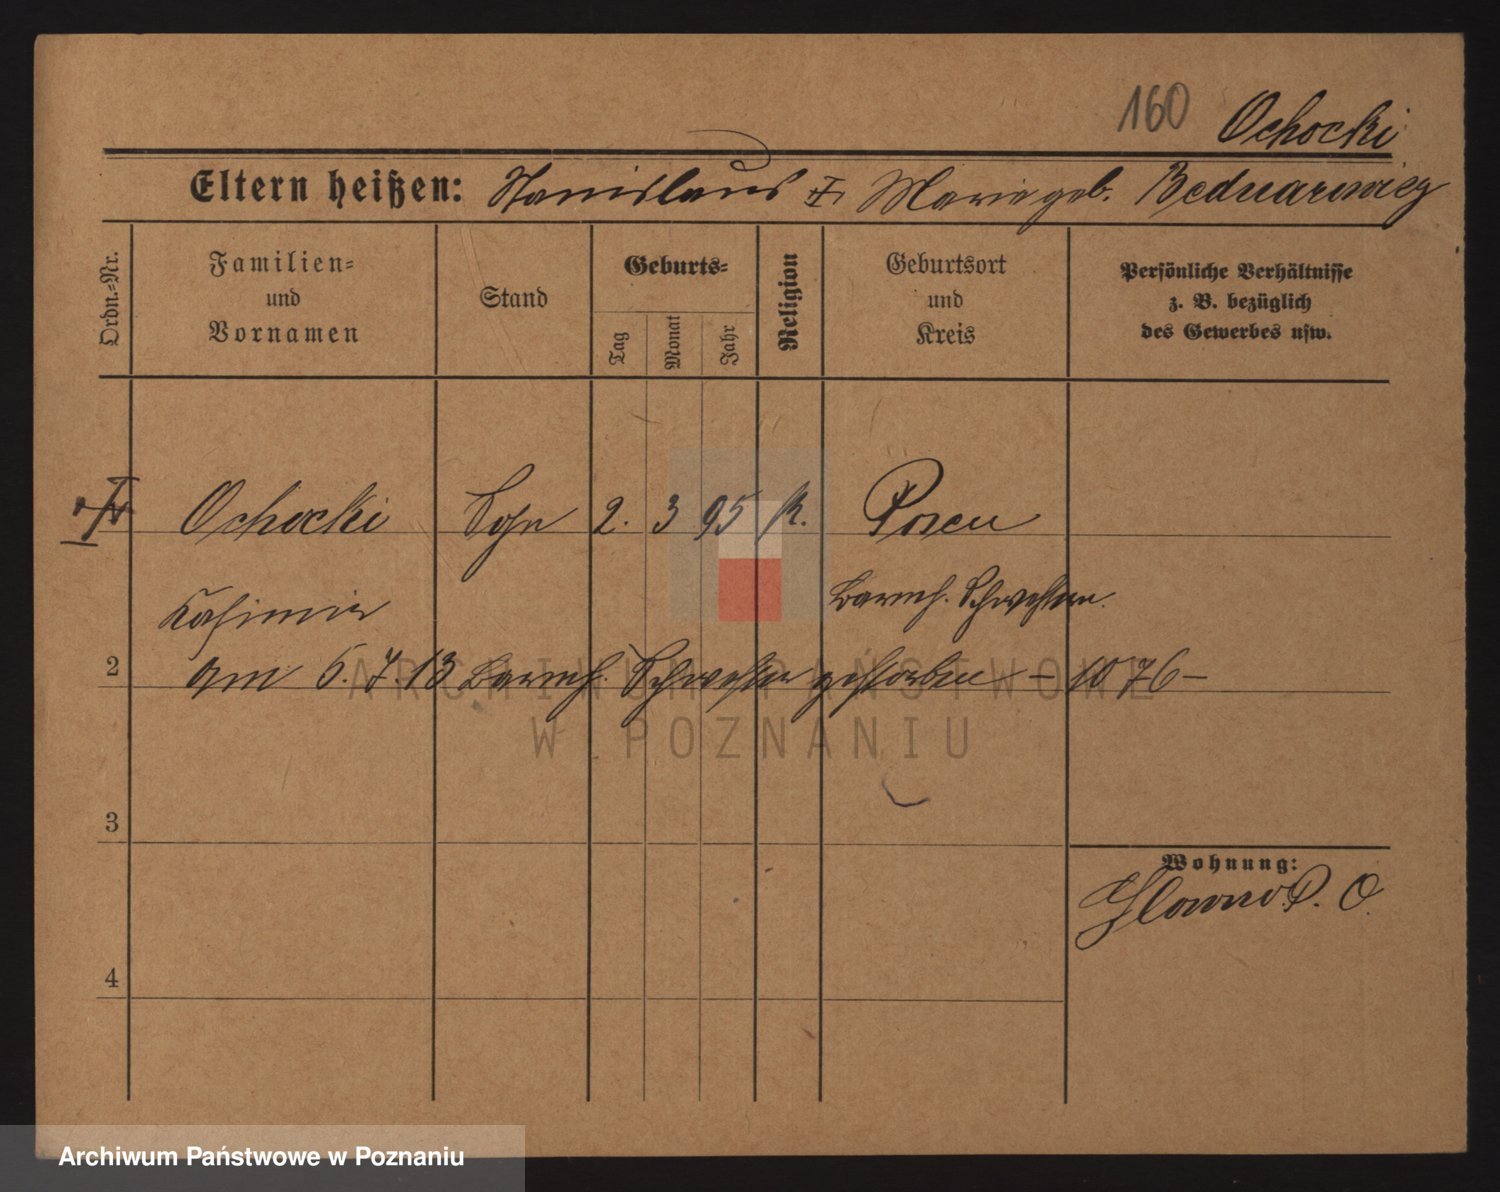 160 Ochocki
Eltern heißen: Stanislaus & Marie geb. Bednarowicz
Ordn.-Nr.
Familien-
und
Vornamen
Stand
Geburts-
Tag
Monat
Jahr
Religion
Geburtsort
und
Kreis
Persönliche Verhältnisse
z. B. bezüglich
des Gewerbes usw.
Ochocki Sohn 2. 3 95 k. Posen
Kasimir Barmh. Schwestern.
2 am 5. 7 13 Barmh. Schwester gestorben – 1076 –
ARCHIWUM PAŃSTWOWE
W POZNANIU
3
Wohnung:
Glowno P. O.
4
Archiwum Państwowe w Poznaniu